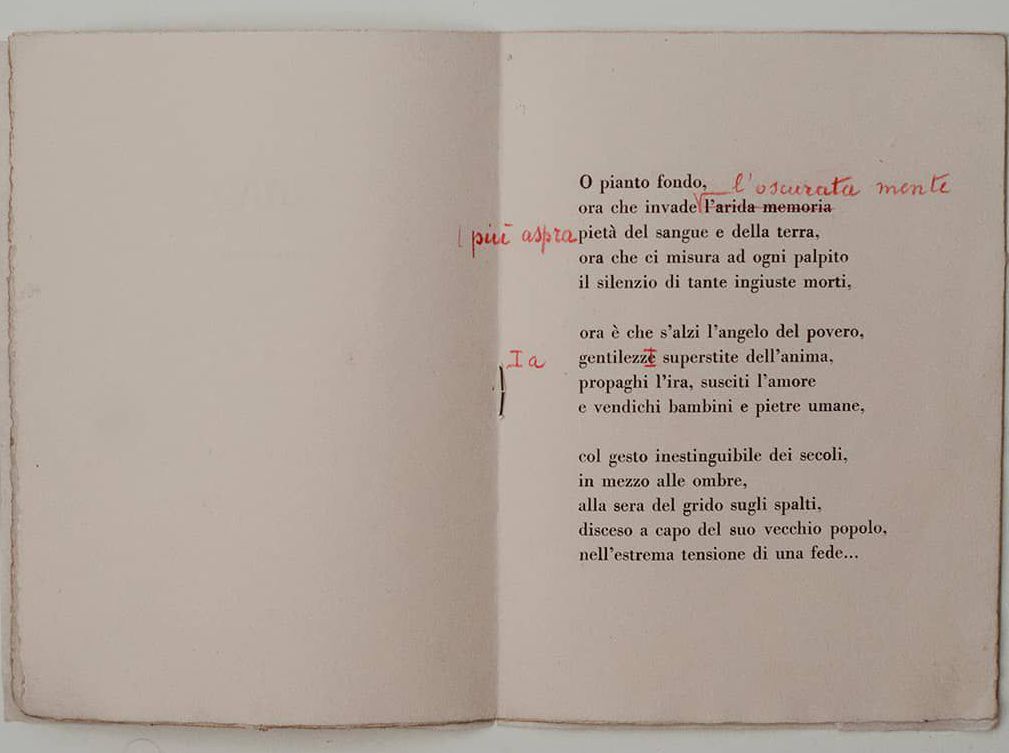 O pianto fondo, l'oscurata mente
ora che invade l'arida memoria
più aspra pietà del sangue e della terra,
ora che ci misura ad ogni palpito
il silenzio di tante ingiuste morti,
ora è che s'alzi l'angelo del povero,
I a gentilezze superstite dell'anima,
propaghi l'ira, susciti l'amore
e vendichi bambini e pietre umane,
col gesto inestinguibile dei secoli,
in mezzo alle ombre,
alla sera del grido sugli spalti,
disceso a capo del suo vecchio popolo,
nell'estrema tensione di una fede...